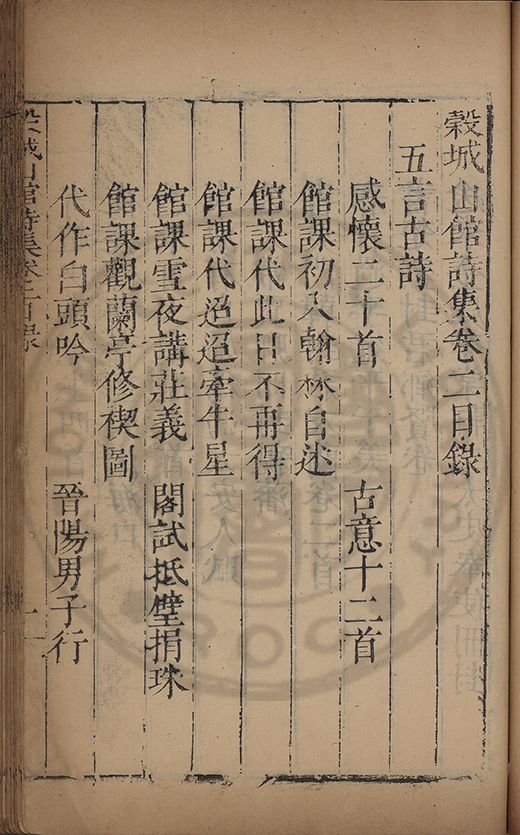 穀城山館詩集卷二目錄
五言古詩
感懷二十首 古意十二首
館課初入翰林自述
館課代此日不再得
館課代迢迢牽牛星
館課雪夜講莊義 閣試抵璧捐珠
館課觀蘭亭修禊圖
代作白頭吟 晉陽男子行